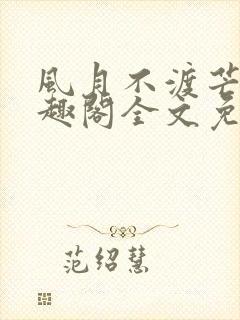 風月不渡芒
趣閣全文免
范绍慧